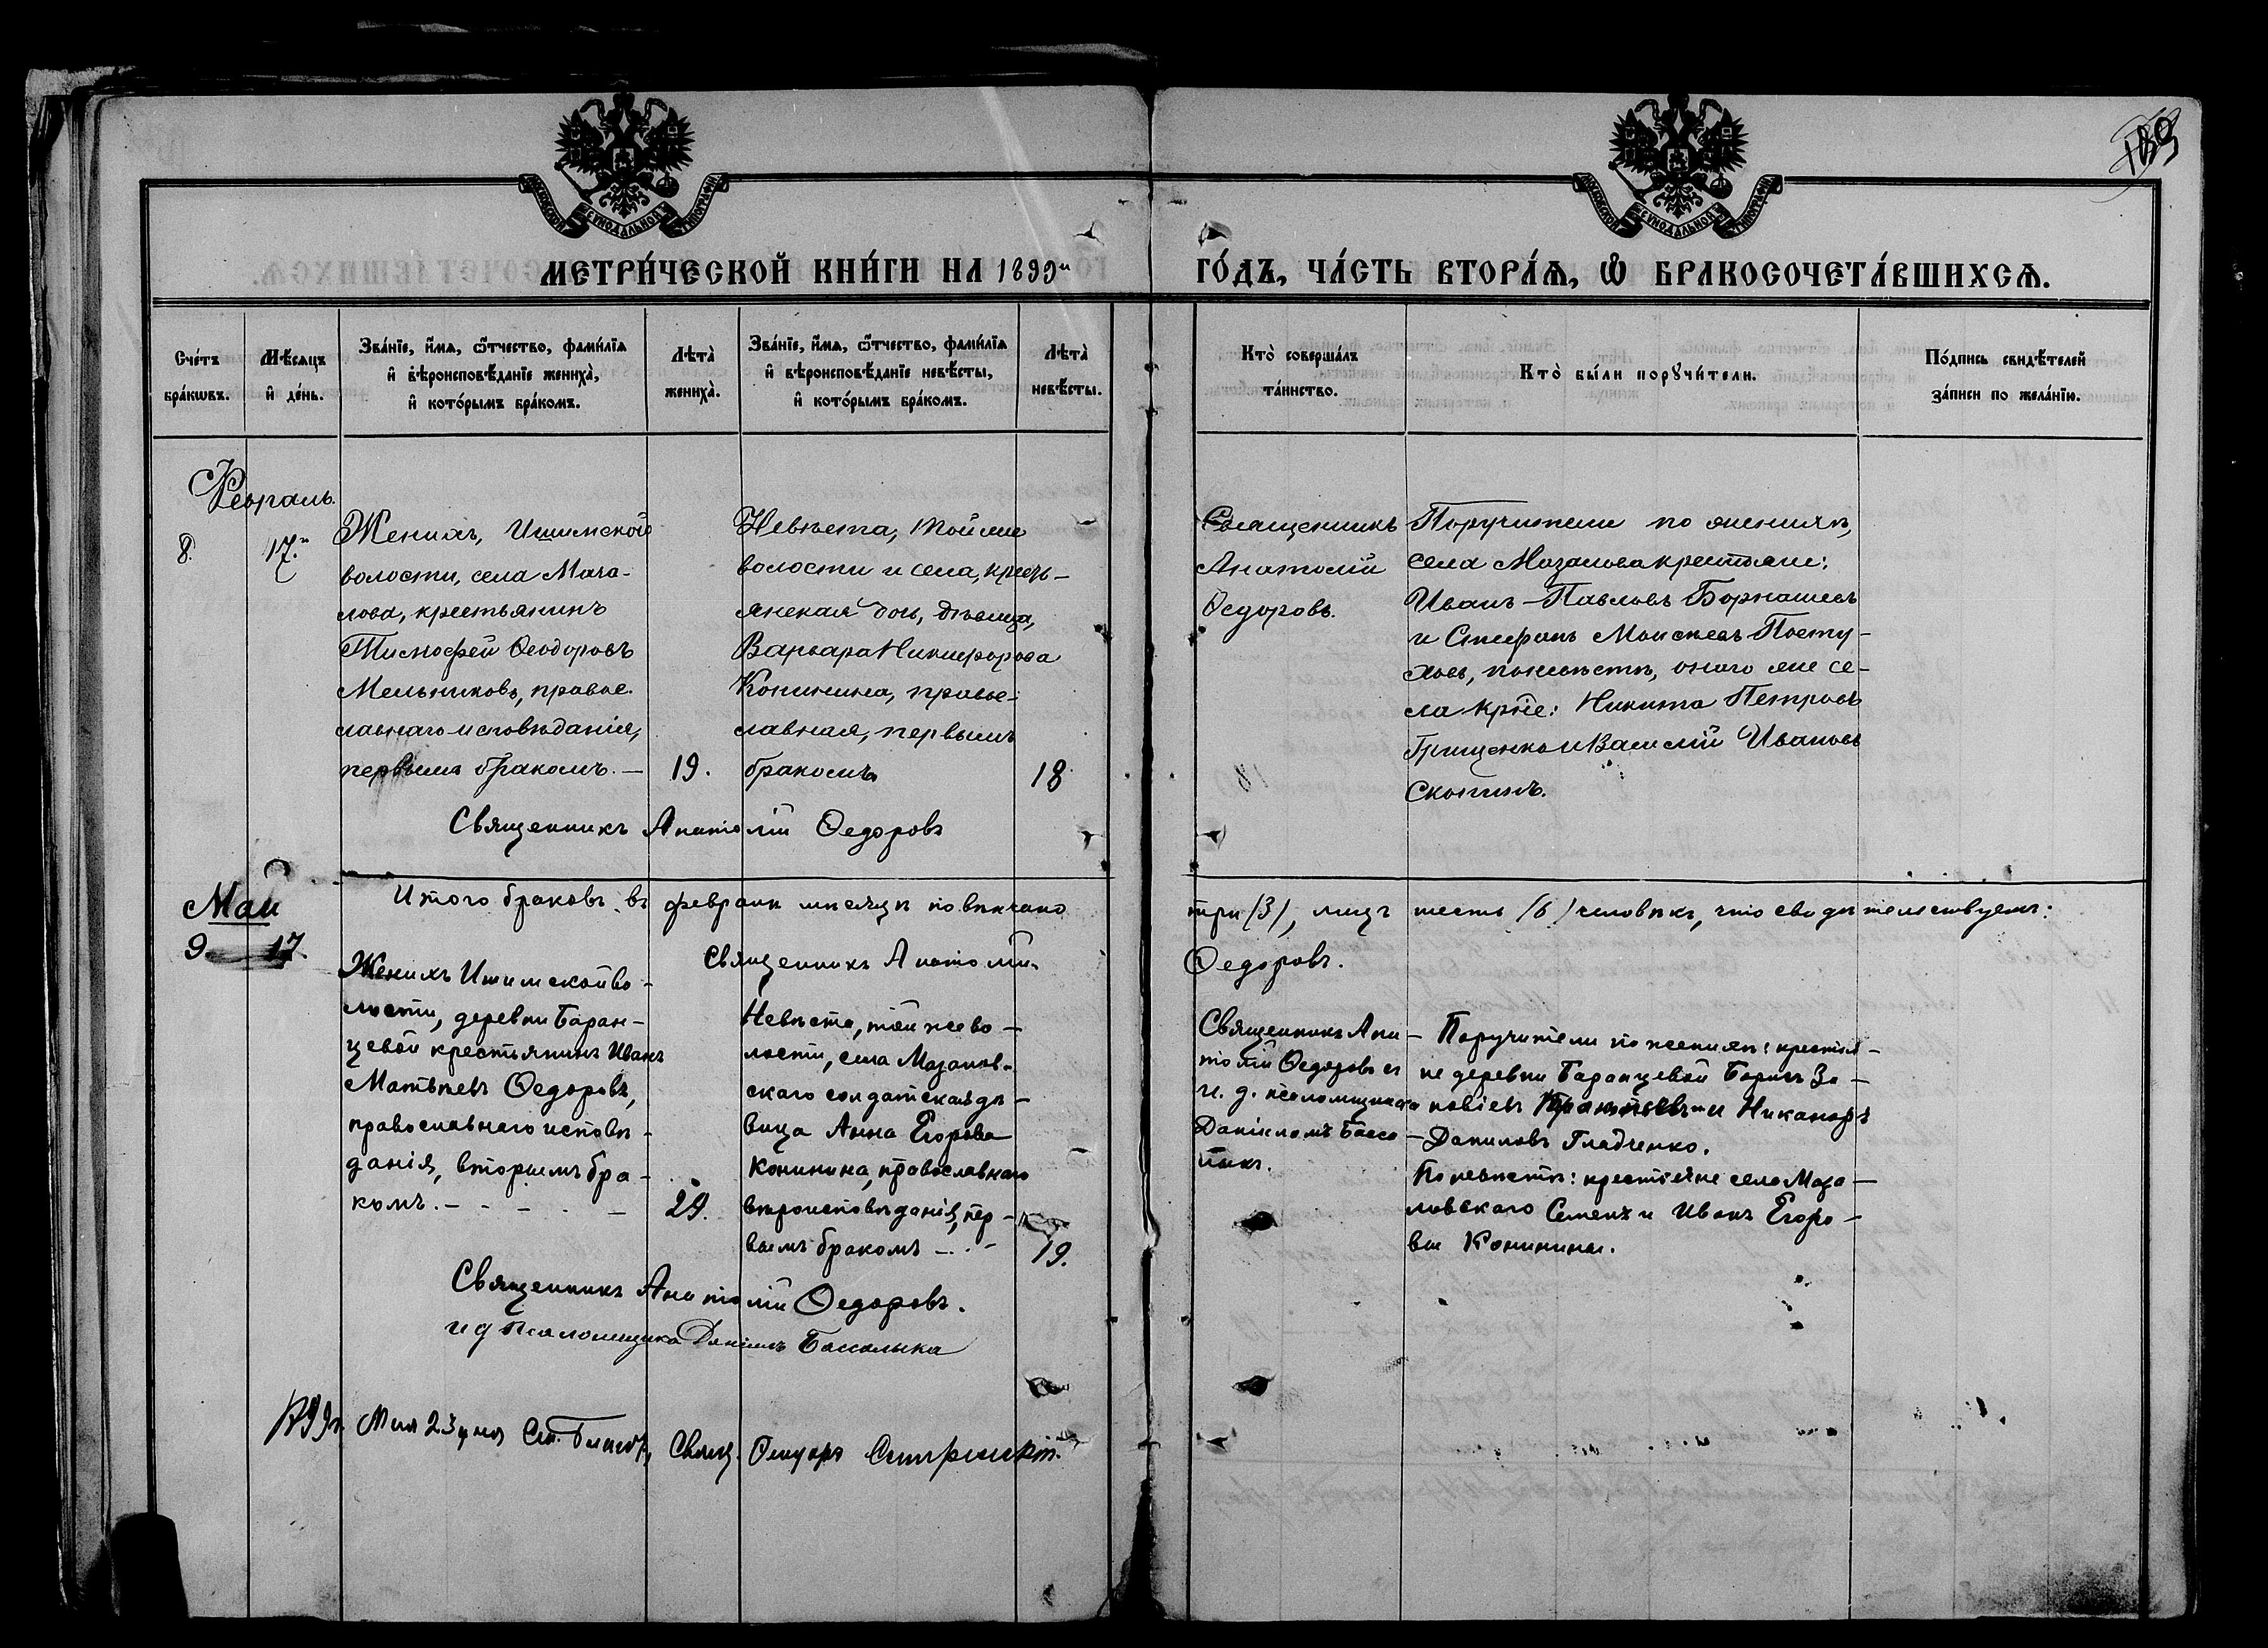 189
МОСКОВСКОЙ СѴНОДАЛЬНОЙ ТИПОГРАФІИ
МОСКОВСКОЙ СѴНОДАЛЬНОЙ ТИПОГРАФІИ
МЕТРИ́ЧЕСКОЙ КНИ́ГИ НА 1899й ГО́ДЪ, ЧА́СТЬ ВТОРА́Ѧ, Ѽ БРАКОСОЧЕТА́ВШИХСѦ.
Сче́тъ
бра́кѡвъ.
Мѣ́сѧцъ
и҆ де́нь.
Зва́нїе, и҆́мѧ, ѻ҆́тчество, фами́лїѧ
и҆ вѣроисповѣ́данїе жениха̀,
и҆ кото́рымъ бра́комъ.
Лѣта̀
жениха̀.
Зва́нїе, и҆́мѧ, ѻ҆́тчество, фами́лїѧ
и҆ вѣроисповѣ́данїе невѣ́сты,
и҆ кото́рымъ бра́комъ.
Лѣта̀
невѣ́сты.
Кто̀ соверша́лъ
та́инство.
Кто̀ бы́ли порꙋчи́тели.
По́дпись свидѣ́телей
за́писи по жела́нїю.
Февраль.
8. 17.го
Женихъ, Ишимской
волости, села Маза-
лова, крестьянинъ
Тимофей Ѳеодоровъ
Мельниковъ, право-
славнаго исповѣданія,
первымъ бракомъ. — 19.
Невѣста, той же
волости и села, кресть-
янская дочь, дѣвица,
Варвара Никифорова
Конинина, право-
славная, первымъ
бракомъ 18
Священникъ
Анатолій
Ѳедоровъ.
Поручители по женихѣ,
села Мазалова крестьяне:
Иванъ Павловъ
и Стефанъ Моисеевъ Посту-
ховъ, по невѣстѣ, оного же се-
ла кр-не: Никита Петровъ
Грищенко и Василій Ивановъ
Скопинъ.
Священникъ Анатолій Ѳедоровъ
Итого браковъ въ февралѣ мѣсяцѣ повѣнчано три (3), лицъ шесть (6) человѣкъ, что свидѣтельствуемъ:
Священникъ Анатолій Ѳедоровъ.
Май
9 17.
Женихъ Ишимской во-
лости, деревни Баран-
цевой крестьянинъ Иванъ
Матвѣевъ Ѳедоровъ,
православнаго исповѣ-
данія, вторымъ бра-
комъ. — 29.
Невѣста, той же во-
лости, села Мазалов-
скаго солдатская дѣ-
вица Анна Егорова
Конинина, православнаго
вѣроисповѣданія, пер-
вымъ бракомъ — 19.
Священникъ Ана-
толій Ѳедоровъ съ
и. д. псаломщика
Даніиломъ Басса-
лыкъ.
Поручители по женихѣ: крестья-
не деревни Баранцевой Борисъ За-
и Никаноръ
Даниловъ Гладченко.
По невѣстѣ: крестьяне села Маза-
ловскаго Семенъ и Иванъ Егоро-
вы Конинины.
Священникъ Анатолій Ѳедоровъ.
и д Псаломщика Даніилъ Бассалыка
1899г. Мая 23 дня Свящ.